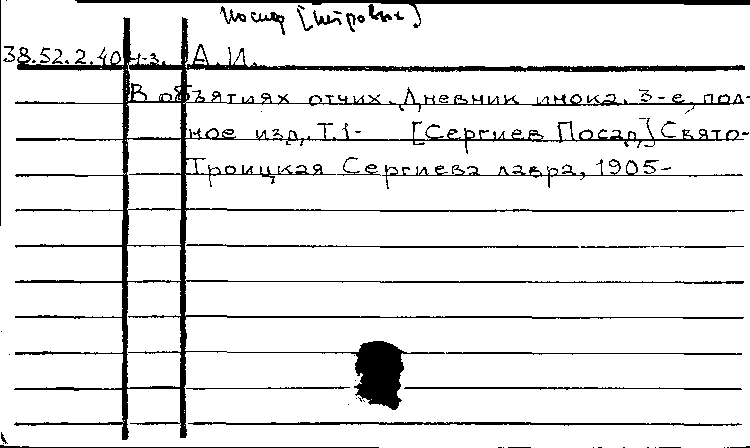 Иосиф [Петровых]
38.52.2.40 1-3. А.И.
В объятиях отчих. Дневник инока. 3-е, пол-
ное изд. Т.1- [Сергиев Посад] Свято-
Троицкая Сергиева лавра, 1905-